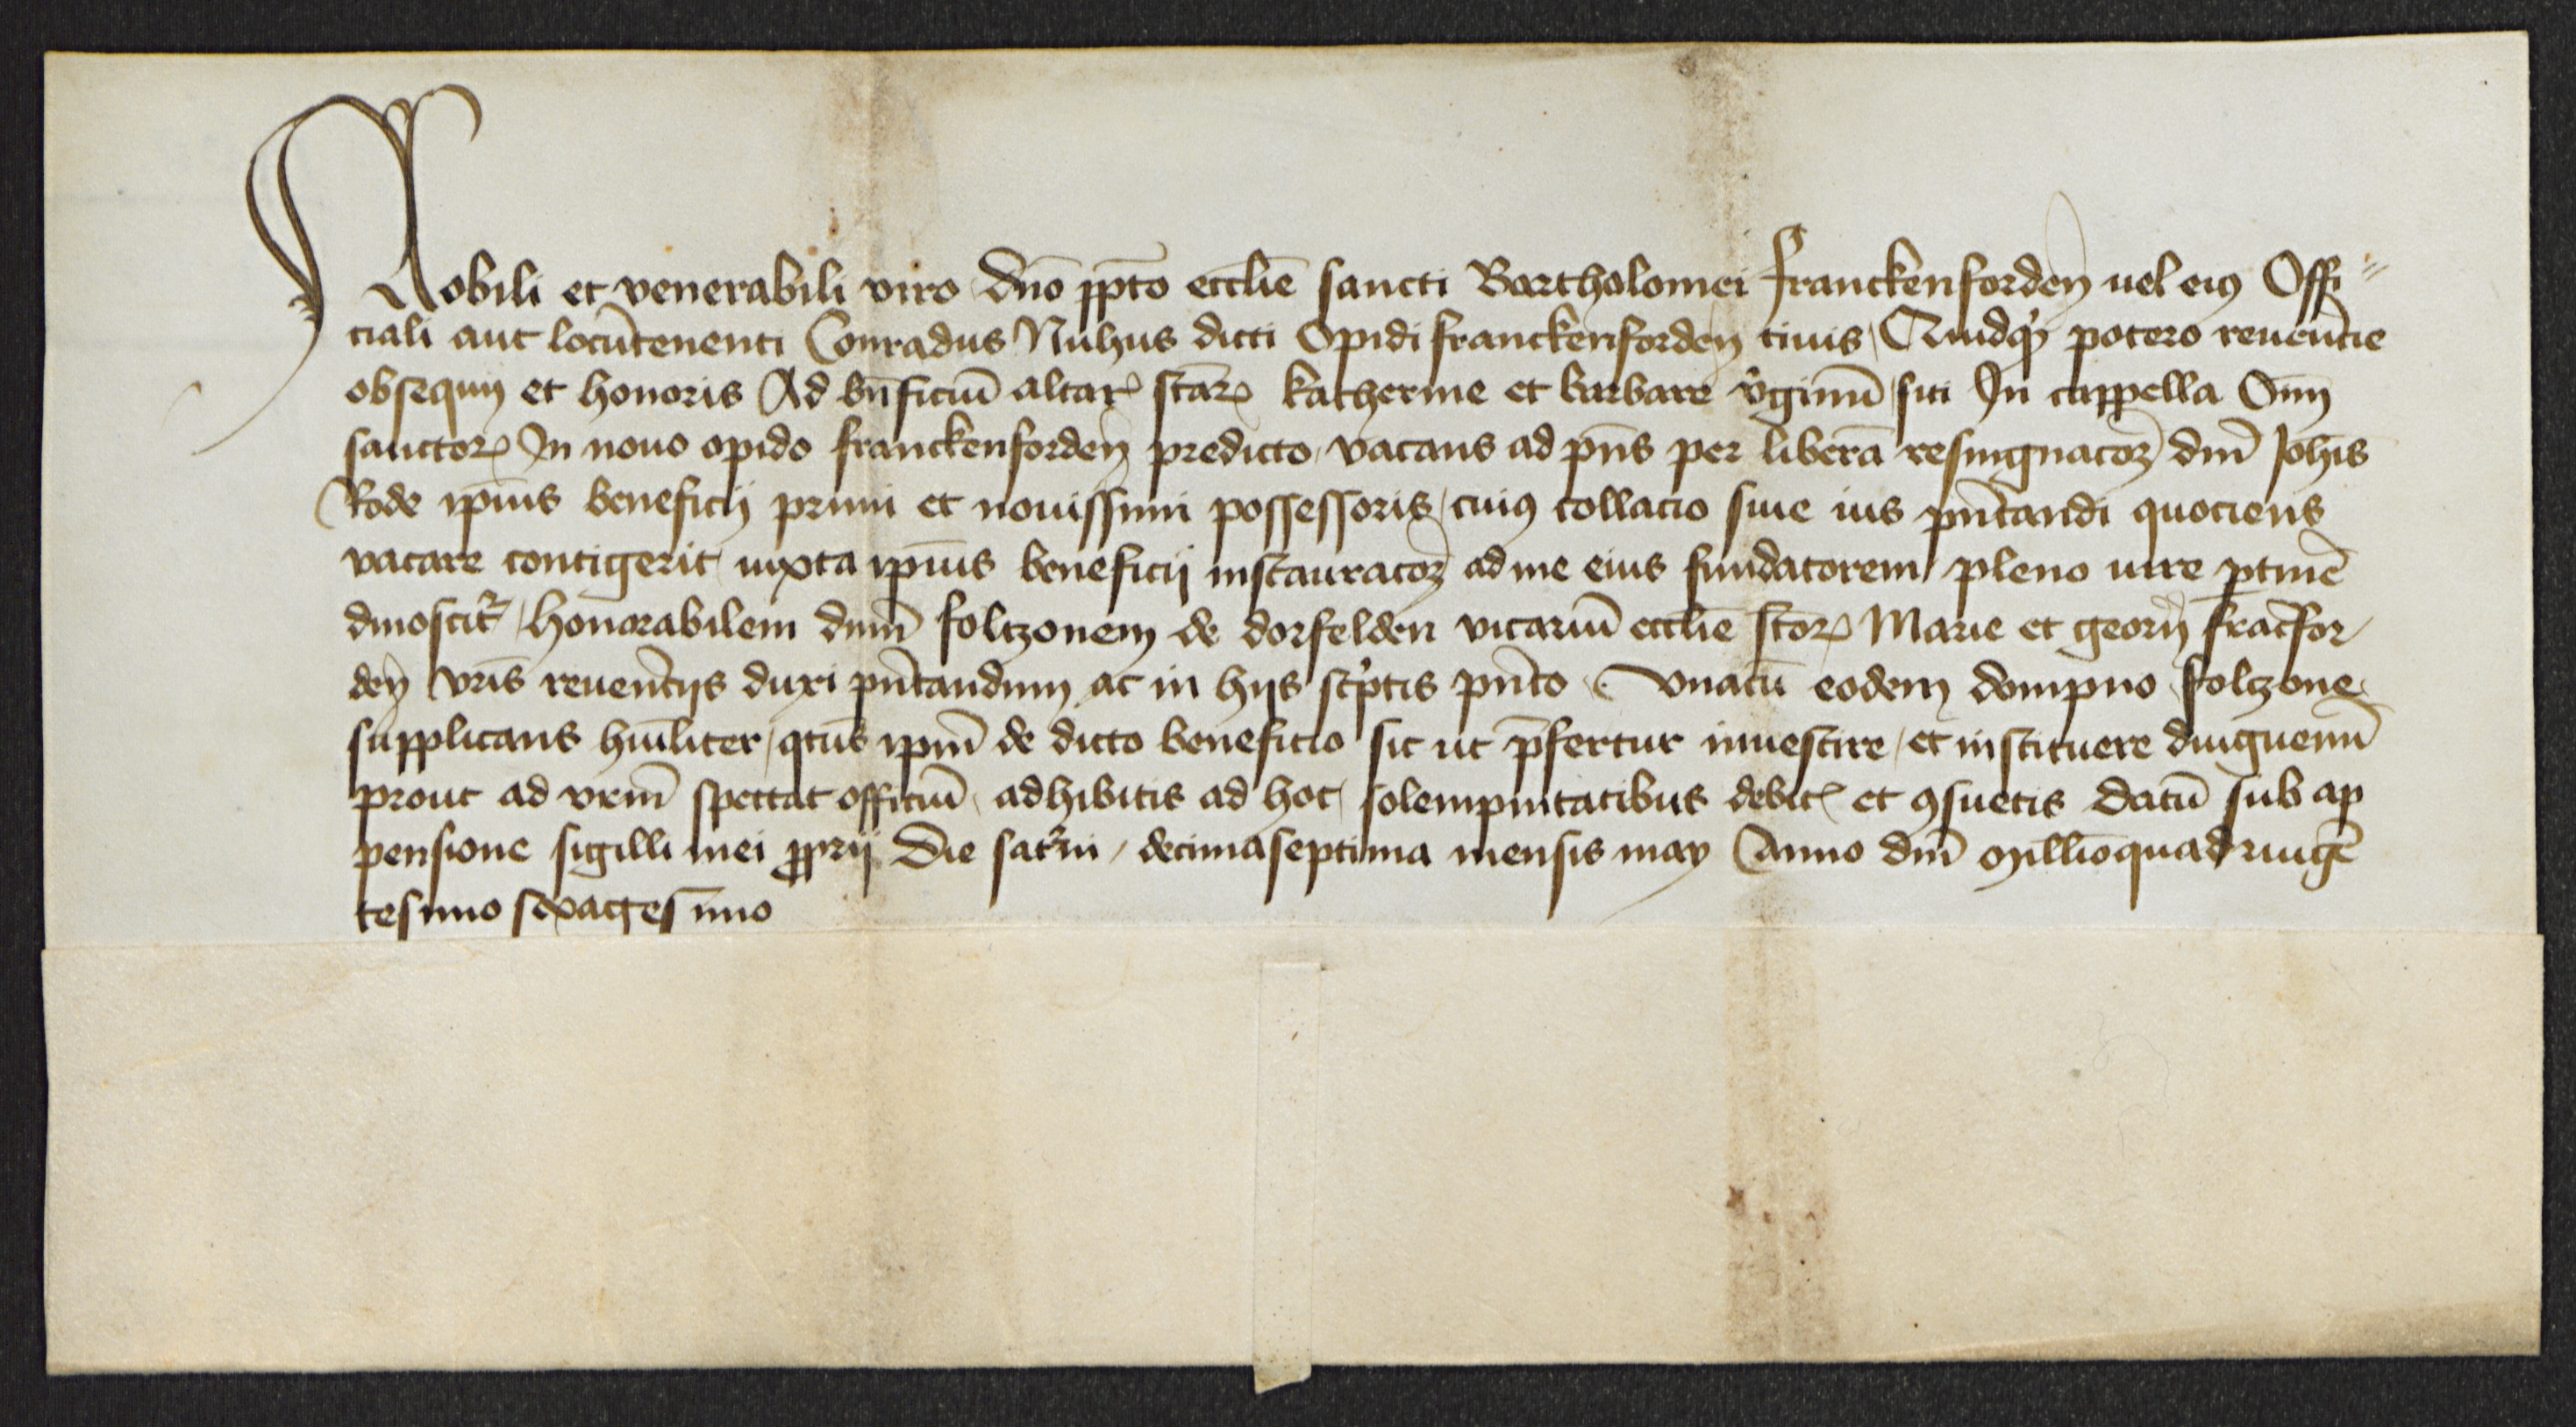 Nobili et venerabili viro dn̄o pp̄to eccl̄ie sancti Bartholomei franckenforden̄ uel eiꝰ Offi⸗
ciali aut locūtenenti Conradus Nuhus dicti Opidi franckenforden̄ ciuis Quidqͥd potero reuerēncie
obsequij et honoris Ad bn̄ficiū altarꝭ sc̄arꝝ katherine et barbare v̓ginū siti In cappella Om̄n
sanctorꝝ In nouo opido franckenforden̄ predicto vacans ad pn̄s per liberā resingnacōꝫ dn̄i Joh̄is
Rode ip̄ius beneficij primi et nouissimi possessoris cuiꝰ collacio siue ius pn̄tandi quociens
vacare contigerit iuxta ip̄ius beneficij instauracōꝫ ad me eius fundatorem pleno iure ꝑtinē
dinoscit᷑ honorabilem dn̄m folczonem de dorfelden vicariū eccl̄ie sc̄orꝝ Marie et georij fracfor
den̄ vr̄is reuerēncijs duxi pn̄tandum ac in hijs scͥptis pn̄to Vnacū eodem dompno folczone
supplicans hūiliter qt̄us ip̄m de dicto beneficio sic ut p̄fertur inuestire et instituere dingnemī
prout ad vr̄m spectat officiū adhibitis ad hoc solempnitatibus debitꝭ et ꝯsuetis Datū sub ap
pensione sigilli mei ꝓprij Die sat᷑ni decimaseptima mensis may Anno dn̄i Millīoquadringē
tesimo sexagesimo